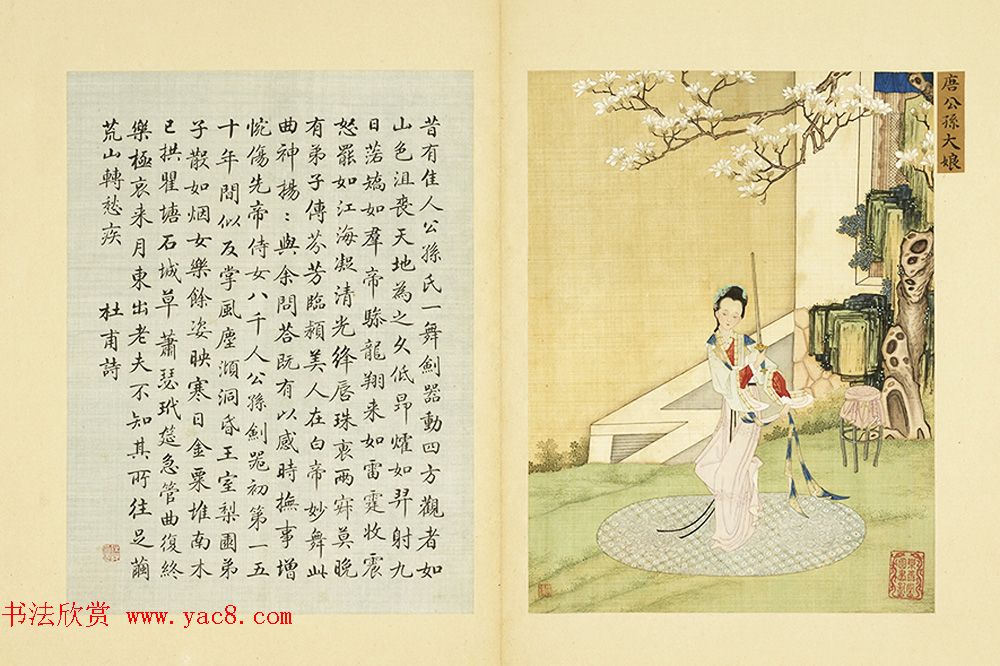 唐公孫大娘
昔有佳人公孫氏一舞劍器動四方觀者如
山色沮喪天地為之久低昂㸌如羿射九
日落矯如羣帝驂龍翔来如雷霆收震
怒罷如江海凝清光絳唇珠褏兩寂莫晚
有弟子傳芬芳臨潁美人在白帝妙舞此
曲神揚〻與余問答既有以感時撫事增
惋傷先帝侍女八千人公孫劍器初第一五
十年間似反掌風塵澒洞昏王室梨園弟
子散如烟女樂餘姿映寒日金粟堆南木
已拱瞿塘石城草蕭瑟玳筵急管曲復終
樂極哀来月東出老夫不知其所往足繭
荒山轉愁疾 杜甫詩
书法欣赏 www.yac8.com